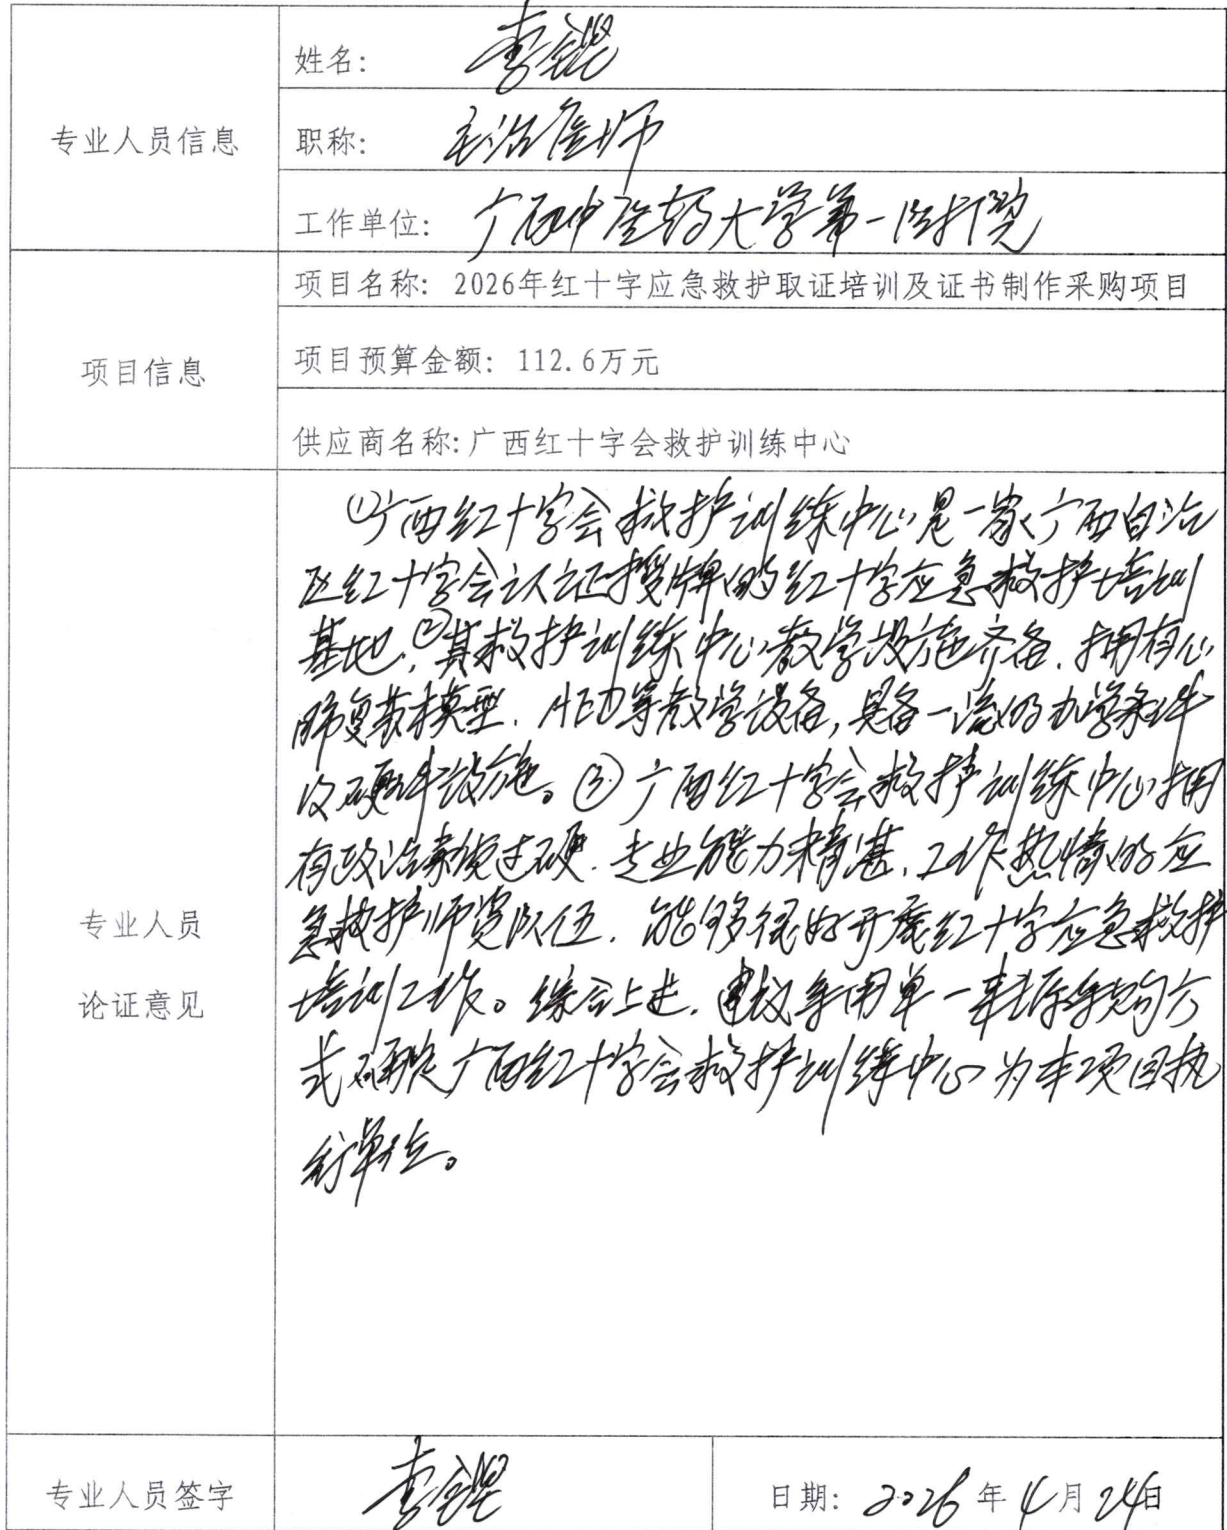 专业人员信息
姓名: 李锟
职称: 主治医师
工作单位: 广西中医药大学第一附属医院
项目信息
项目名称: 2026年红十字应急救护取证培训及证书制作采购项目
项目预算金额: 112.6万元
供应商名称:广西红十字会救护训练中心
专业人员
论证意见
①广西红十字会救护训练中心是一家广西自治
区红十字会认证授牌的红十字应急救护培训
基地,②其救护训练中心教学设施齐备,拥有心
肺复苏模型、AED等教学设备,具备一流的办学条件
及硬件设施。③广西红十字会救护训练中心拥
有政治素质过硬、专业能力精湛、工作热情的应
急救护师资队伍,能够很好开展红十字应急救护
培训工作。综合上述,建议采用单一来源采购方
式确定广西红十字会救护训练中心为本项目执
行单位。
专业人员签字
李锟
日期: 2026年4月24日